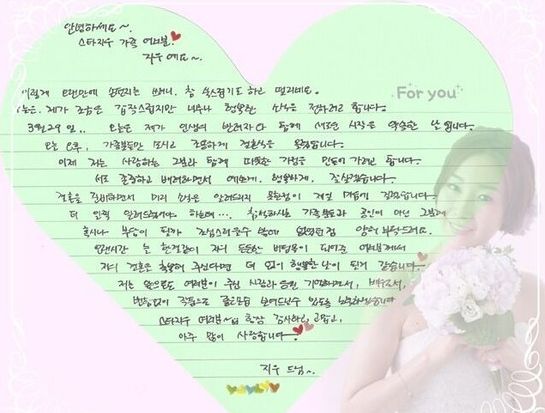 안녕하세요~
스타지우 가족 여러분.
지우예요~
For you
이렇게 오랜만에 손편지를 쓰려니, 참 쑥스럽기도 하고 떨리네요.
오늘은 제가 조금은 갑작스럽지만 너무나 행복한 소식을 전하려고 합니다.
3월 29일.. 오늘은 제가 인생의 반려자와 함께 새로운 시작을 약속한 날입니다.
오늘 오후, 가족분들만 모시고 조용하게 결혼식을 올렸습니다.
이제 저는 사랑하는 그분과 함께 따뜻한 가정을 만들어 가려고 합니다.
서로 존중하고 배려하면서 예쁘게, 행복하게 잘 살겠습니다.
결혼을 준비하면서 미리 소식을 알려드리지 못한 점이 제일 마음에 걸렸습니다.
더 일찍 알려드렸어야 하는데..., 참석하시는 가족분들과 공인이 아닌 그분께
혹시나 부담이 될까 조심스러울 수 밖에 없었던 점 양해 부탁드려요.
오랜 시간 늘 한결같이 저의 든든한 버팀목이 되어준 여러분께서
저의 결혼을 축복해 주신다면 더 없이 행복한 날이 될 것 같습니다.
저는 앞으로도 여러분이 주신 사랑과 응원 기억하면서,
변함없이 작품으로 좋은 모습 보여드릴 수 있도록 노력하겠습니다
스타지우 여러분~ 항상 감사하고, 고맙고,
아주 많이 사랑합니다.
지우 드림~